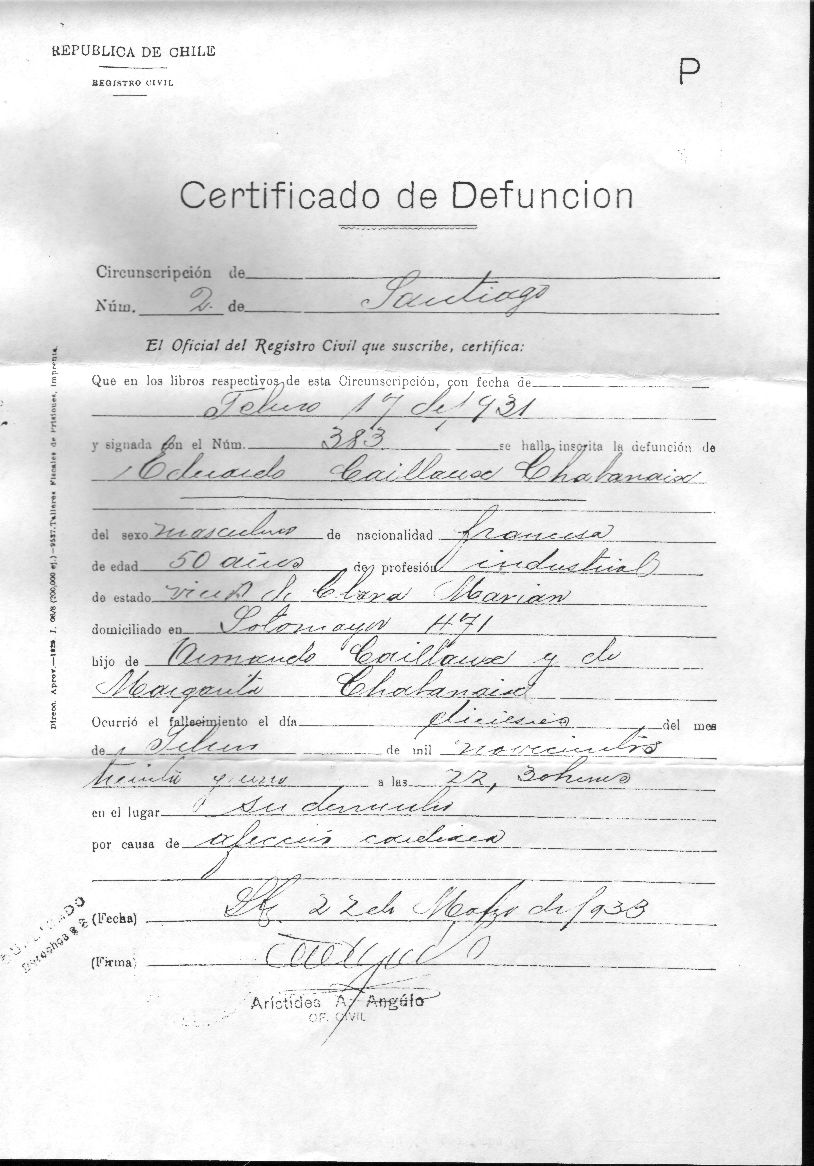 REPUBLICA DE CHILE
REGISTRO CIVIL
P
Certificado de Defuncion
Circunscripción de
Núm. 2 de Santiago
El Oficial del Registro Civil que suscribe, certifica:
Que en los libros respectivos de esta Circunscripción, con fecha de
Febrero 17 de 1931
y signada con el Núm. 383 se halla inscrita la defunción de
Eduardo Caillaux Chabanaix
del sexo masculino de nacionalidad francesa
de edad 50 años de profesión industrial
de estado de Clara Marian
domiciliado en Sotomayor 471
hijo de Armando Caillaux y de
Margarita Chabanaix
Ocurrió el fallecimiento el día dieciseis del mes
de Febrero de mil novecientos
treinta y uno a las 22,30 horas
en el lugar su domicilio
por causa de afección cardiaca
(Fecha) Stg. 22 de de 1933
(Firma)
Arístides A. Angúlo
OF. CIVIL
Direcc. Aprov.—1929 J. 08/8 (200,000 ej.)—9537.-Talleres Fiscales de Prisiones, Imprenta.
Derechos $ 2